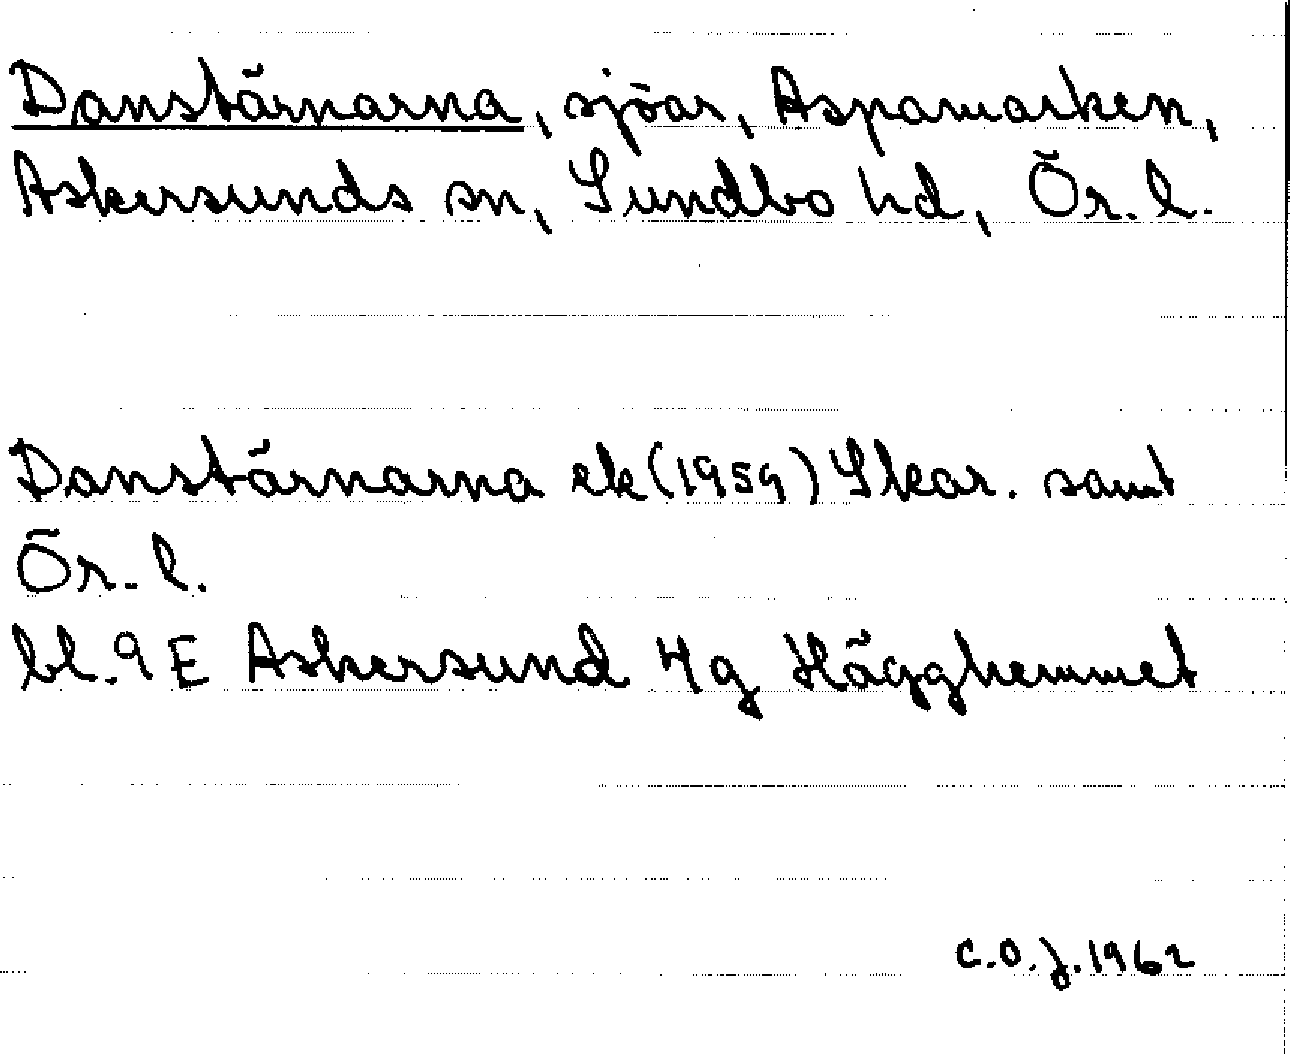 Danstärnarna, sjöar, Aspamarken,
Askersunds sn, Sundbo hd, Ör. l.
Danstärnarna ek (1959) Skar. samt
Ör. l.
bl. 9 E Askersund 4g Hägghemmet
C.O.J. 1962